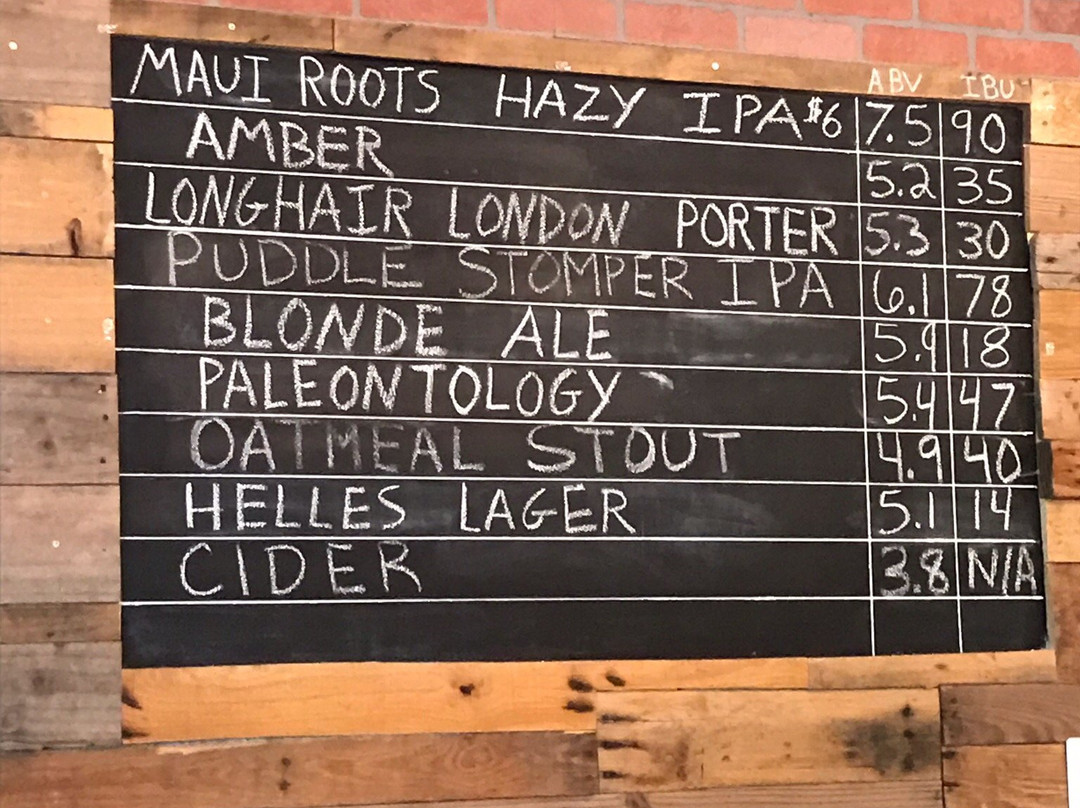 ABV IBU
MAUI ROOTS HAZY IPA $6 7.5 90
AMBER 5.2 35
LONGHAIR LONDON PORTER 5.3 30
PUDDLE STOMPER IPA 6.1 78
BLONDE ALE 5.9 18
PALEONTOLOGY 5.4 47
OATMEAL STOUT 4.9 40
HELLES LAGER 5.1 14
CIDER 3.8 N/A